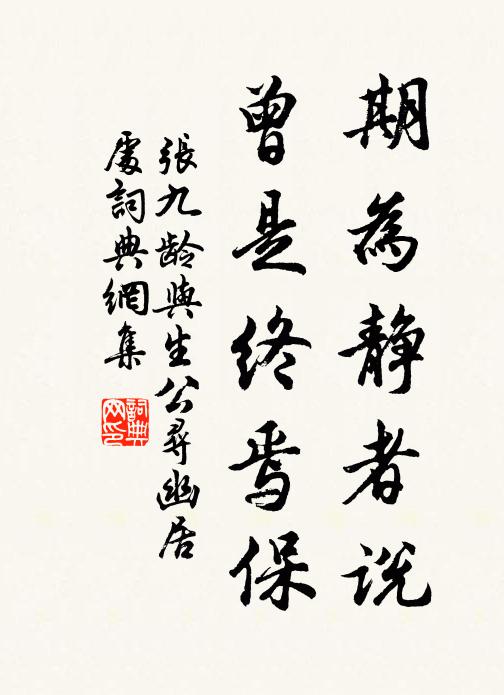 期為靜者說
曾是終焉保
張九齡與生公尋幽居
處詞典網集
詞典
网印